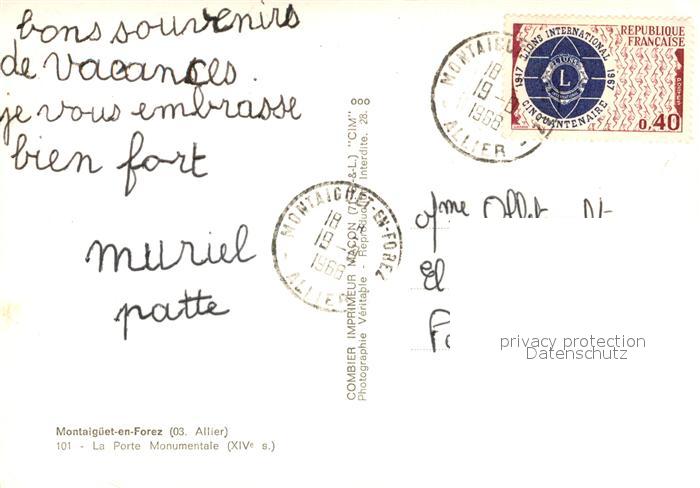 bons souvenirs
de vacances.
je vous embrasse
bien fort
muriel
patte
Montaigüet-en-Forez (03. Allier)
101 - La Porte Monumentale (XIVe s.)
COMBIER IMPRIMEUR MACON "CIM"
Photographie Véritable - Reproduction Interdite. 28.
MONTAIGUET-EN-FOREZ
18
19-
1968
ALLIER
MONTAIGU
18
19-
1968
ALLIER
RÉPUBLIQUE
FRANÇAISE
LIONS INTERNATIONAL
1917
1967
LIONS
L
CINQUANTENAIRE
0,40
Mme
El
privacy protection
Datenschutz